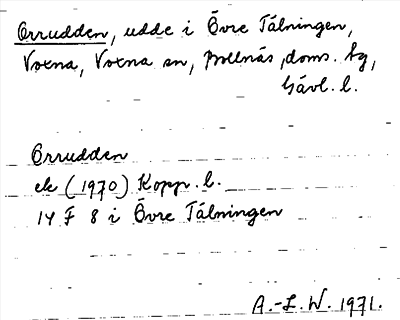 Orrudden, udde i Övre Tälningen,
Voxna, Voxna sn, Bollnäs, doms. tg,
Gävl. l.
Orrudden
ek (1970) Kopp. l.
14 F 8 i Övre Tälningen
A.-L. W. 1971.